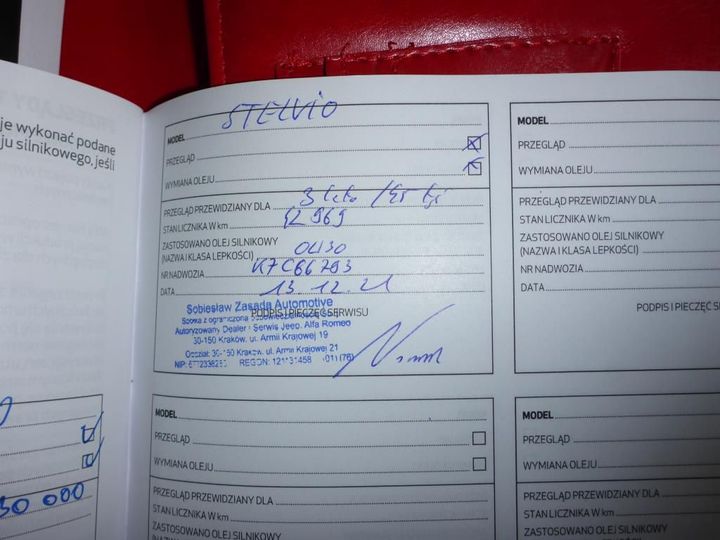 je wykonać podane
ju silnikowego, jeśli
30 000
STELVIO
MODEL
PRZEGLĄD
WYMIANA OLEJU
PRZEGLĄD PRZEWIDZIANY DLA 3 lata /45 tyś
STAN LICZNIKA W km 42 969
ZASTOSOWANO OLEJ SILNIKOWY
(NAZWA I KLASA LEPKOŚCI) 0W30
NR NADWOZIA K7C66793
DATA 13.12.21
PODPIS I PIECZĘĆ SERWISU
Sobiesław Zasada Automotive
Spółka z ograniczoną odpowiedzialnością
Autoryzowany Dealer i Serwis Jeep, Alfa Romeo
30-150 Kraków, ul. Armii Krajowej 19
Oddział: 30-150 Kraków, ul. Armii Krajowej 21
NIP: REGON:
MODEL
PRZEGLĄD
WYMIANA OLEJU
PRZEGLĄD PRZEWIDZIANY DLA
STAN LICZNIKA W km
ZASTOSOWANO OLEJ SILNIKOWY
MODEL
PRZEGLĄD
WYMIANA OLEJU
PRZEGLĄD PRZEWIDZIANY DLA
STAN LICZNIKA W km
ZASTOSOWANO OLEJ SILNIKOWY
(NAZWA I KLASA LEPKOŚCI)
NR NADWOZIA
DATA
PODPIS I PIECZĘĆ
MODEL
PRZEGLĄD
WYMIANA OLEJU
PRZEGLĄD PRZEWIDZIANY DLA
STAN LICZNIKA W km
ZASTOSOWANO OLEJ SILNIKOWY